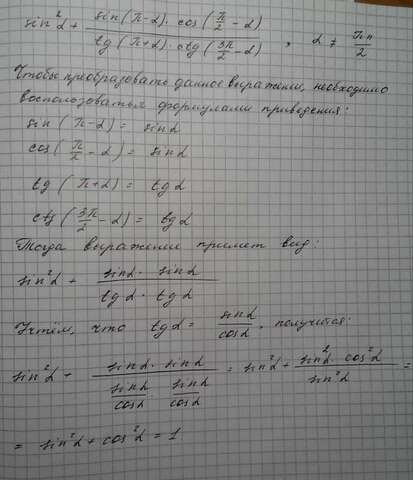 sin²α + (sin(π-α) · cos(π/2 - α)) / (tg(π+α) · ctg(3π/2 - α)) , α ≠ πn/2
Чтобы преобразовать данное выражение, необходимо
воспользоваться формулами приведения:
sin(π-α) = sinα
cos(π/2 - α) = sinα
tg(π+α) = tgα
ctg(3π/2 - α) = tgα
Тогда выражение примет вид:
sin²α + (sinα · sinα) / (tgα · tgα)
Учтём, что tgα = sinα/cosα, получится:
sin²α + (sinα · sinα) / (sinα/cosα · sinα/cosα) = sin²α + (sin²α · cos²α) / sin²α =
= sin²α + cos²α = 1